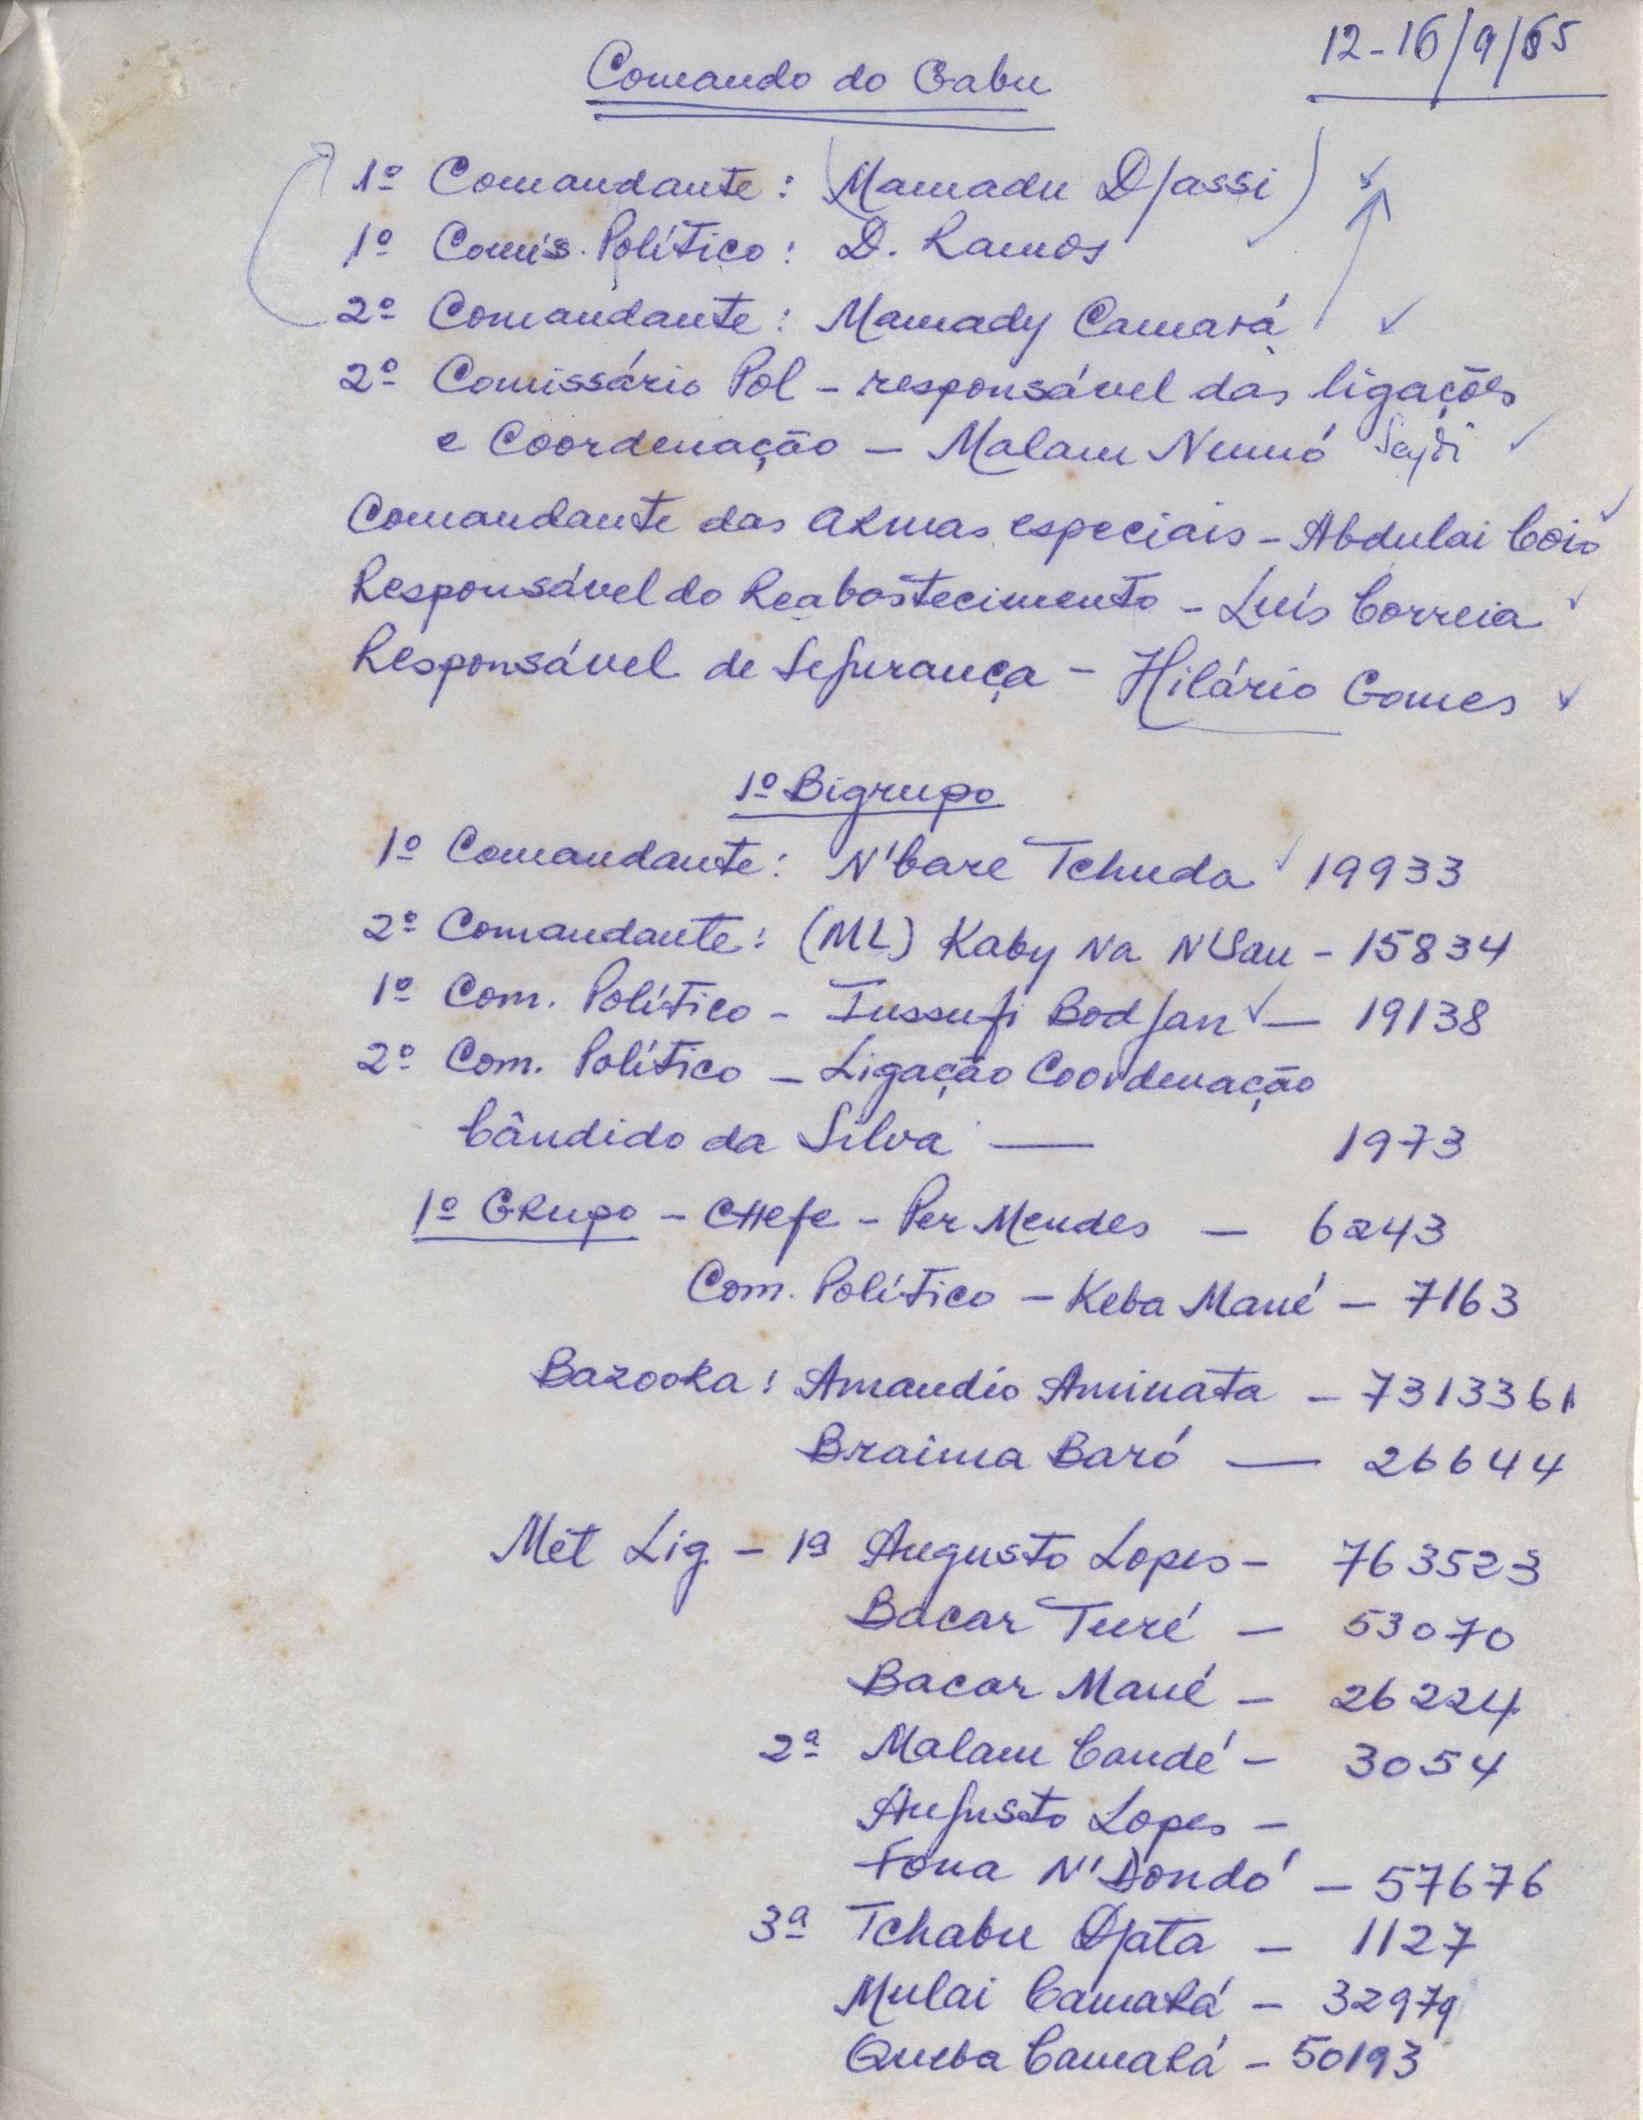 12-16/9/65
Comando do Gabu
1º Comandante: (Mamadu Djassi)
1º Comis. Político: D. Ramos
2º Comandante: Mamady Camará
2º Comissário Pol - responsável das ligações
e Coordenação - Malam Numó
Comandante das armas especiais - Abdulai
Responsável do Reabastecimento - Luís Correia
Responsável de Segurança - Hilário Gomes
1º Bigrupo
1º Comandante: N'bare Tchuda 19933
2º Comandante: (ML) Kaby Na - 15834
1º Com. Político - Iussufi Bodjan - 19138
2º Com. Político - Ligação Coordenação
Cândido da Silva - 1973
1º Grupo - Chefe - Per Mendes - 6243
Com. Político - Keba Mané - 7163
Bazooka: Amandio Aminata - 731336
Braima Baró - 26644
Met Lig - 1ª Augusto Lopes - 763523
Bacar Turé - 53070
Bacar Mané - 26224
2ª Malam Candé - 3054
Augusto Lopes -
Fona N'Dondó - 57676
3ª Tchabu Djata - 1127
Mulai Camará - 32979
Queba Camará - 50193